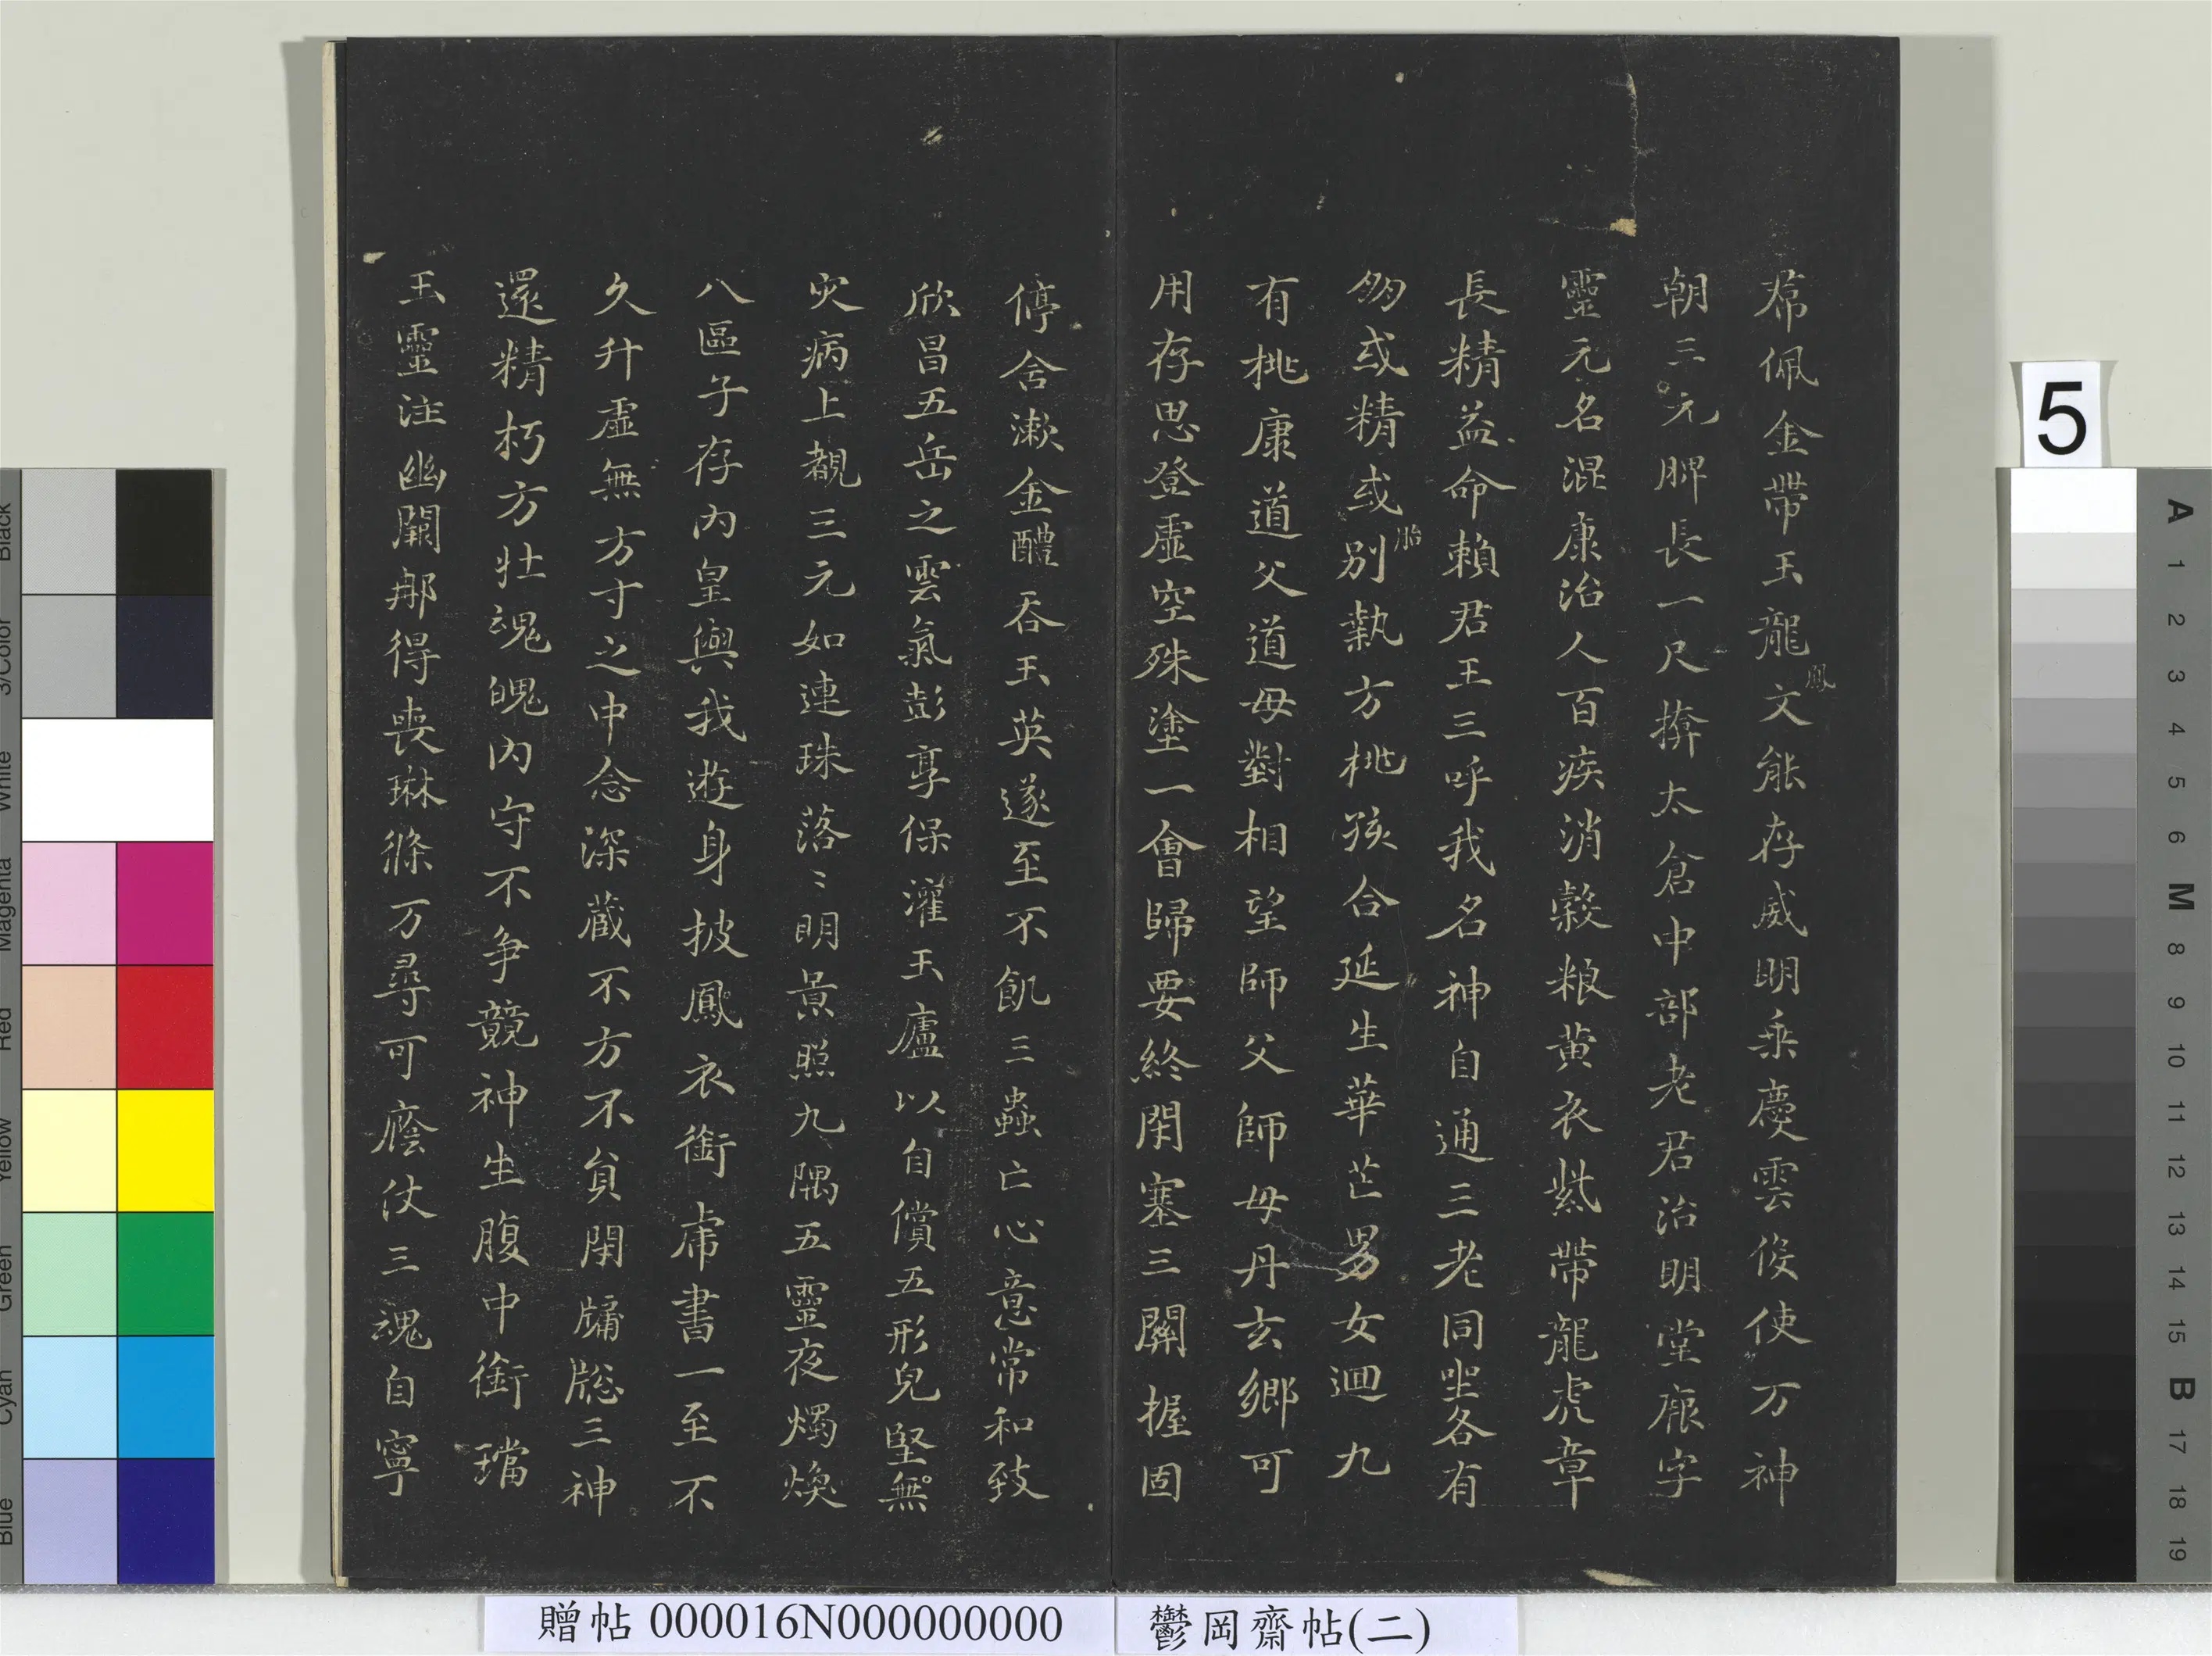 席佩金帶玉龍文能存威明乘慶雲役使万神
鳳
朝三元脾長一尺揜太倉中部老君治明堂厥字
靈元名混康治人百疾消穀粮黄衣紫帶龍虎章
長精益命賴君王三呼我名神自通三老同坐各有
朋或精或別執方桃孩合延生華芒男女迴九
胎
有桃康道父道母對相望師父師母丹玄鄉可
用存思登虛空殊塗一會歸要終閉塞三關握固
停舍漱金醴吞玉英遂至不飢三蟲亡心意常和致
欣昌五岳之雲氣彭享保灌玉廬以自償五形皃堅無
灾病上覩三元如連珠落〻明景照九隅五靈夜燭煥
八區子存內皇與我遊身披鳳衣銜虎書一至不
久升虛無方寸之中念深藏不方不負閉牖䆫三神
還精朽方壮魂魄內守不争競神生腹中銜璫
玉靈注幽闕那得喪琳條万尋可癊仗三魂自寧
贈帖 000016N000000000
鬱岡齋帖(二)
5
A 1 2 3 4 5 6 M 8 9 10 11 12 13 14 15 B 17 18 19
Black
3/Color
White
Magenta
Red
Yellow
Green
Cyan
Blue